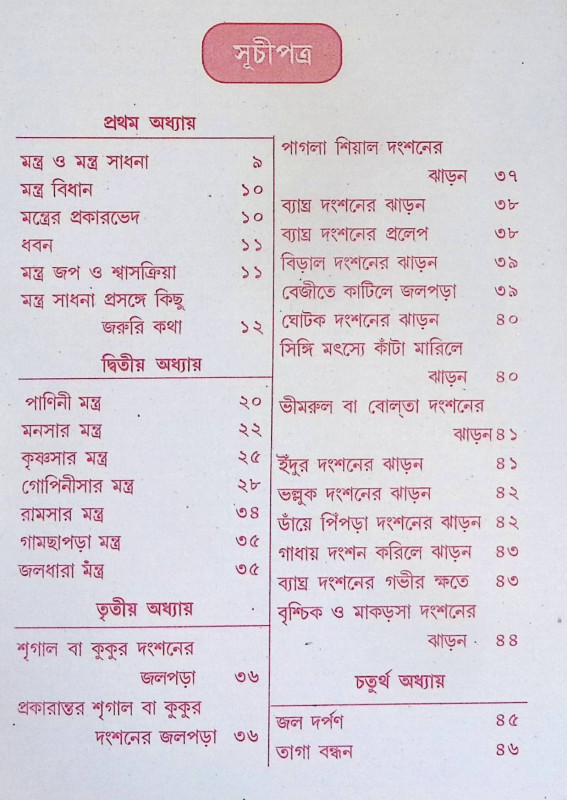 সূচীপত্র
প্রথম অধ্যায়
মন্ত্র ও মন্ত্র সাধনা ৯
মন্ত্র বিধান ১০
মন্ত্রের প্রকারভেদ ১০
ধবন ১১
মন্ত্র জপ ও শ্বাসক্রিয়া ১১
মন্ত্র সাধনা প্রসঙ্গে কিছু
জরুরি কথা ১২
দ্বিতীয় অধ্যায়
পাণিনী মন্ত্র ২০
মনসার মন্ত্র ২২
কৃষ্ণসার মন্ত্র ২৫
গোপিনীসার মন্ত্র ২৮
রামসার মন্ত্র ৩৪
গামছাপড়া মন্ত্র ৩৫
জলধারা মন্ত্র ৩৫
তৃতীয় অধ্যায়
শৃগাল বা কুকুর দংশনের
জলপড়া ৩৬
প্রকারান্তর শৃগাল বা কুকুর
দংশনের জলপড়া ৩৬
পাগলা শিয়াল দংশনের
ঝাড়ন ৩৭
ব্যাঘ্র দংশনের ঝাড়ন ৩৮
ব্যাঘ্র দংশনের প্রলেপ ৩৮
বিড়াল দংশনের ঝাড়ন ৩৯
বেজীতে কাটিলে জলপড়া ৩৯
ঘোটক দংশনের ঝাড়ন ৪০
সিঙ্গি মৎস্যে কাঁটা মারিলে
ঝাড়ন ৪০
ভীমরুল বা বোল্‌তা দংশনের
ঝাড়ন ৪১
ইঁদুর দংশনের ঝাড়ন ৪১
ভল্লুক দংশনের ঝাড়ন ৪২
ডাঁয়ে পিঁপড়া দংশনের ঝাড়ন ৪২
গাধায় দংশন করিলে ঝাড়ন ৪৩
ব্যাঘ্র দংশনের গভীর ক্ষতে ৪৩
বৃশ্চিক ও মাকড়সা দংশনের
ঝাড়ন ৪৪
চতুর্থ অধ্যায়
জল দর্পণ ৪৫
তাগা বন্ধন ৪৬